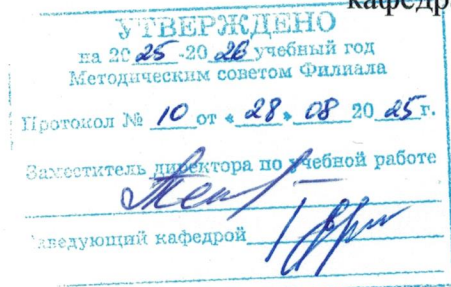 кафедр
УТВЕРЖДЕНО
на 2025-2026 учебный год
Методическим советом Филиала
Протокол № 10 от « 28 » 08 2025 г.
Заместитель директора по учебной работе
заведующий кафедрой